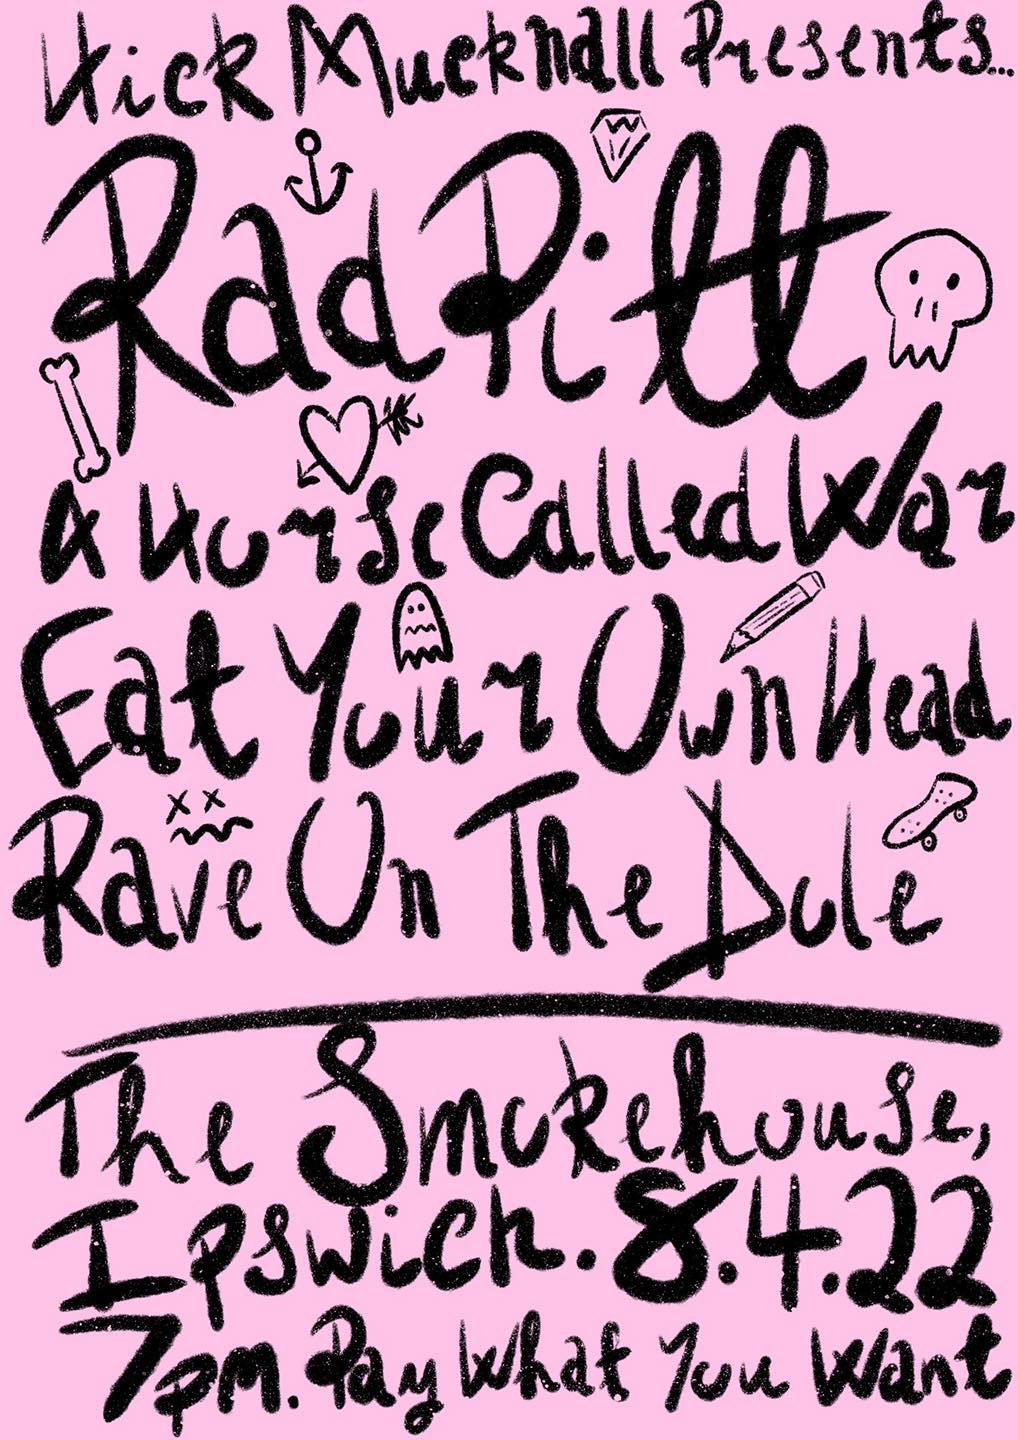 Hick Mucknall Presents...
Rad Pitt
A Horse Called War
Eat Your Own Head
Rave On The Dole
The Smokehouse,
Ipswich. 8.4.22
7pm. Pay What You Want